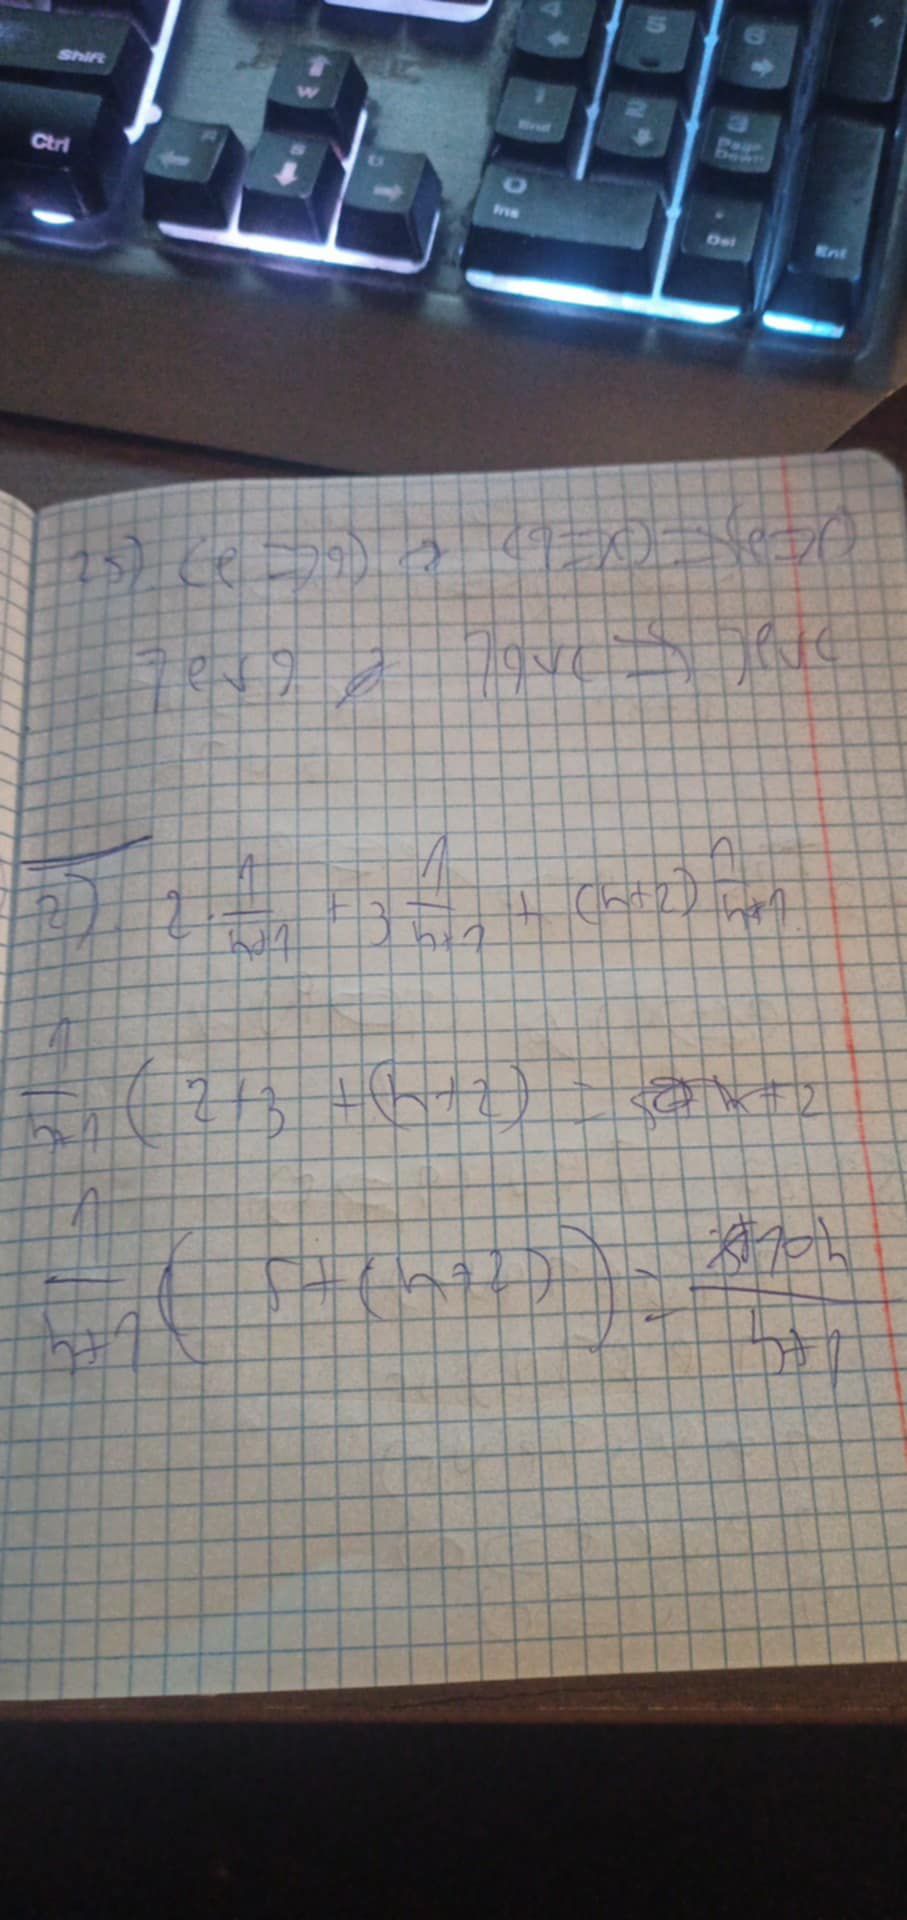 Shift
Ctrl
W
S
4
5
6
+
1
End
2
3
Page
Down
0
Ins
.
Del
Ent
25) (e ⇒ 9) (9 ⇒ ) ⇒ (e ⇒ )
7 e v 9 7 9 v c ⇒ 7 e v c
2). 2 · 1/(n+1) + 3 1/(n+1) + (n+2) 1/(n+1)
1/(n+1) ( 2+3 + (n+2) = n+2
1/(n+1) ( 5 + (n+2) ) = /(n+1)